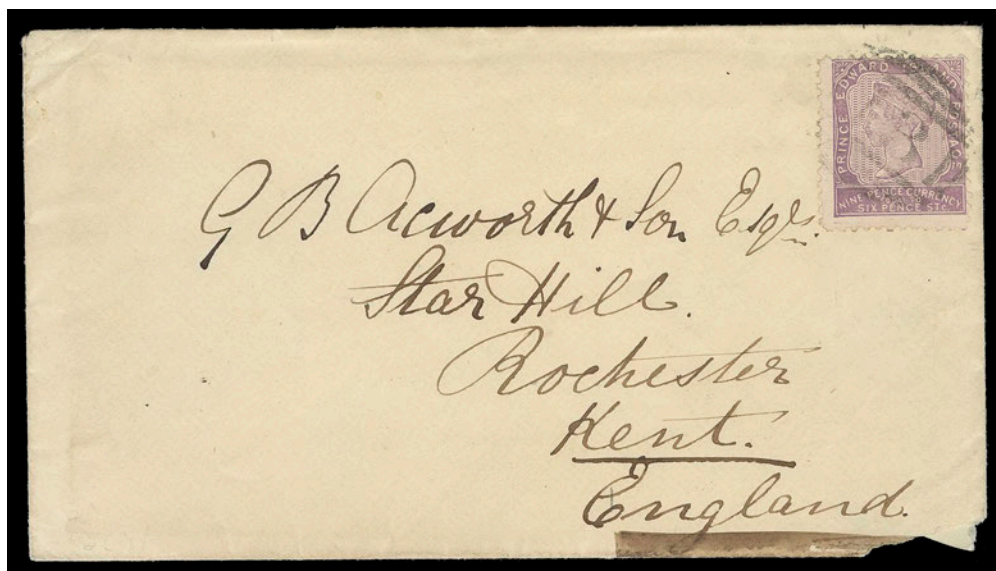 PRINCE EDWARD ISLAND POSTAGE
NINE PENCE CURRENCY
SIX PENCE STG
G B Acworth & Son Esqrs.
Star Hill.
Rochester
Kent.
England.